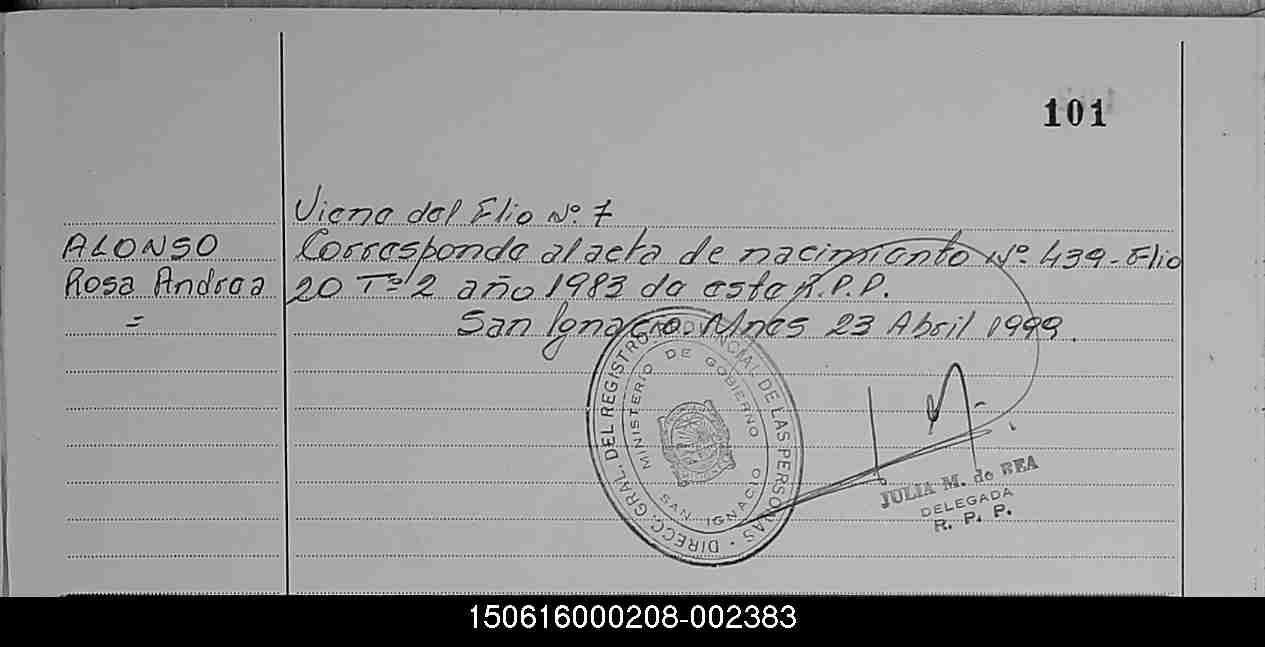 101
Viene del Flio Nº. 7
ALONSO
Rosa Andrea
=
Corresponde al acta de nacimiento Nº. 439 - Flio
20 Tº 2 año 1983 de esta R.P.P.
San Ignacio. Mnes 23 Abril 1999.
DIRECC. GRAL. DEL REGISTRO PROVINCIAL DE LAS PERSONAS
MINISTERIO DE GOBIERNO
SAN IGNACIO
JULIA M. de REA
DELEGADA
R. P. P.
150616000208-002383